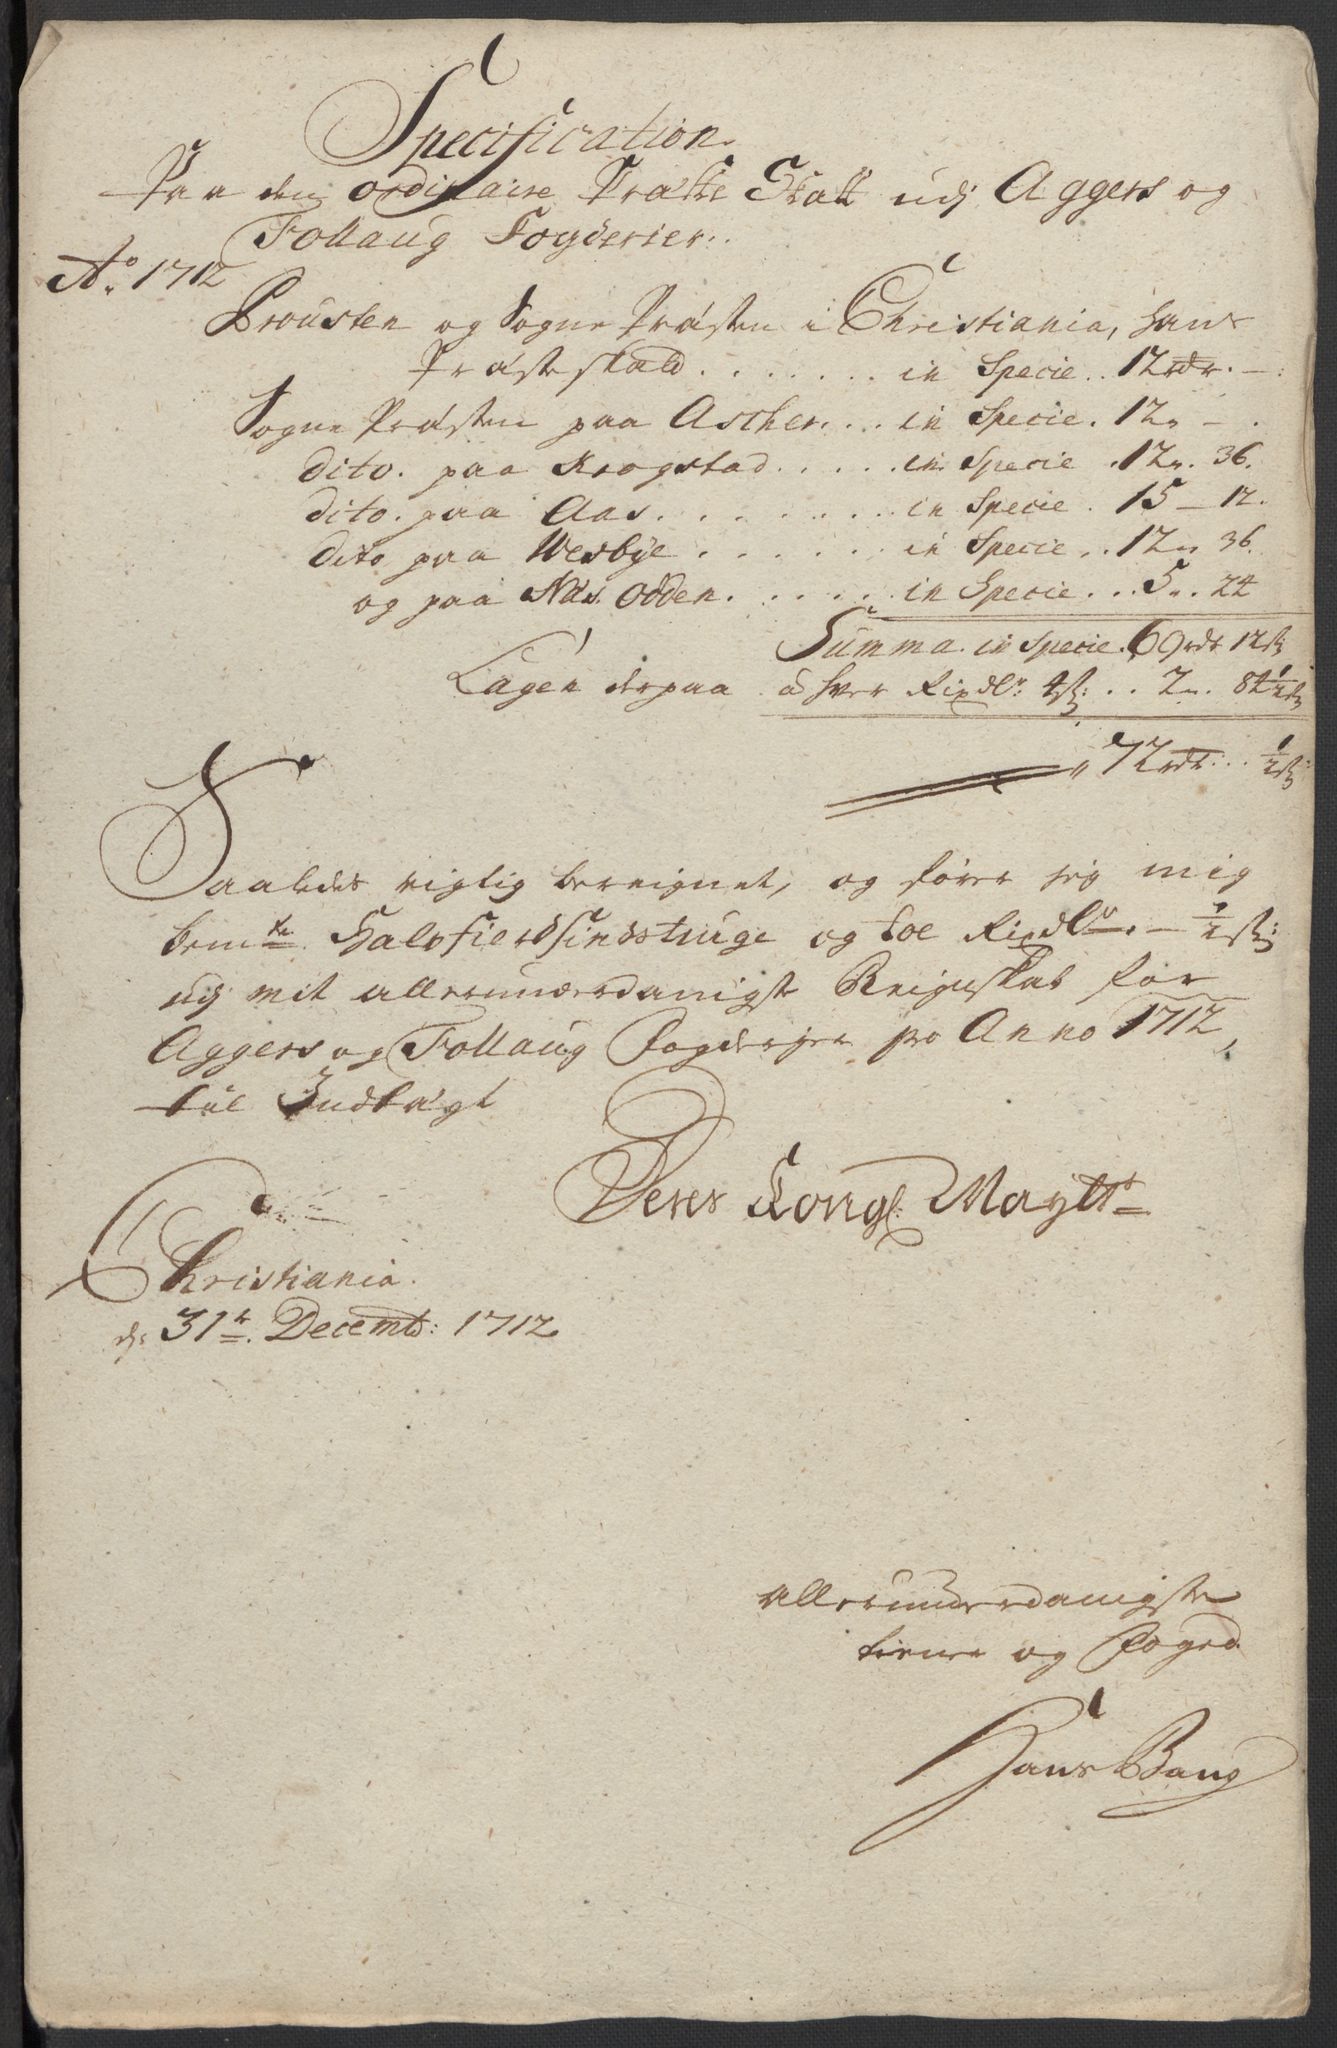 Specification
Paa den ordinaire Præste Skatt udj Aggers og
Follaug Fogderier.
Ao. 1712
Prousten og Sogne Præsten i Christiania, hans
Præste kald . . . . . . . in Specie .. 12 rdr. —
Sogne Præsten paa Ascher . . . in Specie . 12 „ — .
dito. paa Krogstad . . . . . in Specie . 12 „. 36.
dito. paa Aas . . . . . . . . in Specie . 15 — 12.
dito paa Wesbye . . . . . . in Specie . . 12 „ 36.
og paa Næs Odden . . . . . . in Specie . . . 5 „. 24
Summa in Specie . 69 rdr 12 sk
Lagen derpaa à hver Rixdlr: 4 sk: . . 2 „. 84½ sk
„ 72 rdr: . . ½ sk:
Saaledes rigtig bereignet, og fører jeg mig
bemte Halvfierdsindstiuge og toe Rixdlr. — ½ sk:
udj mit allerunderdanigste Reignskab for
Aggers og Follaug Fogderjer pro Anno 1712,
til Indtægt
Deres Kongl: Maytts
Christiania
d: 31te. Decembr: 1712
allerunderdanigste
tiener og Foged
Hans Bang